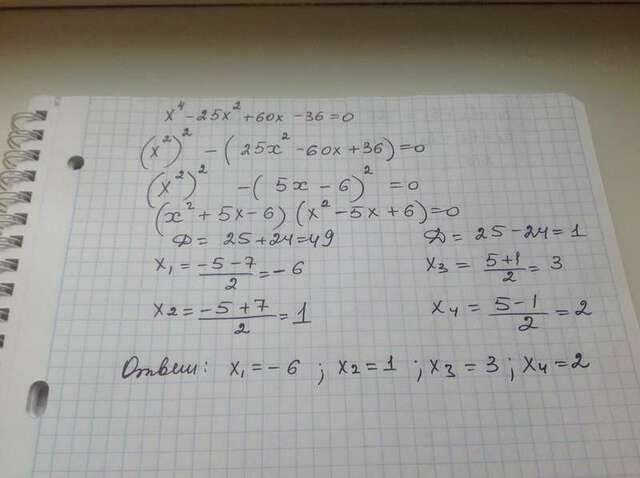 x⁴ - 25x² + 60x - 36 = 0
(x²)² - (25x² - 60x + 36) = 0
(x²)² - (5x - 6)² = 0
(x² + 5x - 6)(x² - 5x + 6) = 0
D = 25 + 24 = 49 D = 25 - 24 = 1
x₁ = (-5 - 7)/2 = -6 x₃ = (5 + 1)/2 = 3
x₂ = (-5 + 7)/2 = 1 x₄ = (5 - 1)/2 = 2
Ответ: x₁ = -6 ; x₂ = 1 ; x₃ = 3 ; x₄ = 2